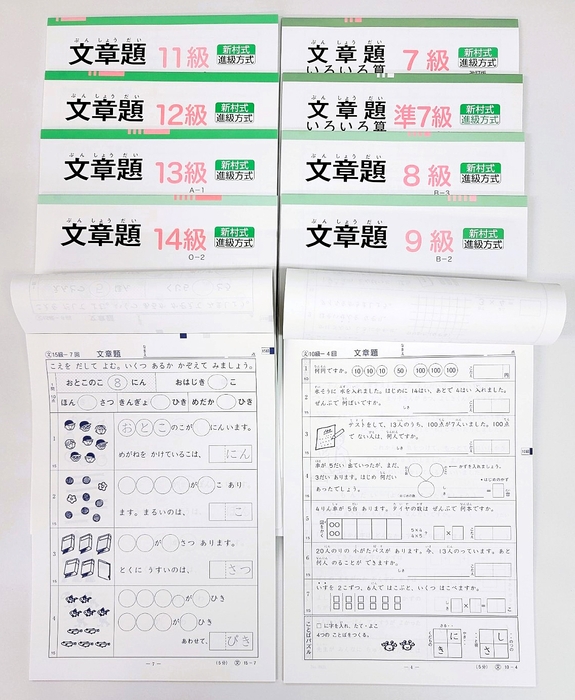 ぶんしょうだい
文章題 11級 新村式 進級方式
ぶんしょうだい
文章題 12級 新村式 進級方式
ぶんしょうだい
文章題 13級 新村式 進級方式
A-1
ぶんしょうだい
文章題 14級 新村式 進級方式
O-2
文章題 7級 新村式 進級方式
いろいろ算
文章題 準7級 新村式 進級方式
いろいろ算
文章題 8級 新村式 進級方式
B-3
文章題 9級 新村式 進級方式
B-2
文15級-7回 文章題 点
こえを だして よむ。いくつ あるか かぞえて みましょう。
おとこのこ 8 にん おはじき こ
ほん さつ きんぎょ ひき めだか ひき
1
おとこのこが にんいます。
めがねを かけているは、 にん
2
が こ あり
ます。まるいのは、 こ
3
が さつ あります。
とくに うすいのは、 さつ
4
が ひき
が ひき
あわせて、 ひき
-7- (5分) 文 15-7
文10級-4回 文章題 点
1
何円ですか。 10 10 10 50 100 100 100 円
2
水そうに 水を入れました。はじめに 14はい、あとで 4はい 入れました。
ぜんぶで 何ばいですか。 しき
3
テストをして、13人のうち、100点が7人いました。100点
で ない人は、何人ですか。
しき
4
車が 5だい 出ていったが、まだ、
3だい あります。はじめ 何だい
あったでしょう。
かずを入れましょう。
しき
5
4りん車が 5台 あります。タイヤの数は ぜんぶで 何本ですか。
図をかく
5×4
4×5
しき
6
20人のりの 小がたバスが あります。今、13人のっています。あと
何人 のることが できますか。
しき
7
いすを 2こずつ、6人で はこぶと、いくつ はこべますか。
しき
ことばパズル
□に字を入れ、たて・よこ
4つの ことばをつくる。
に
き
し
さ
-4- (5分) 文 10-4